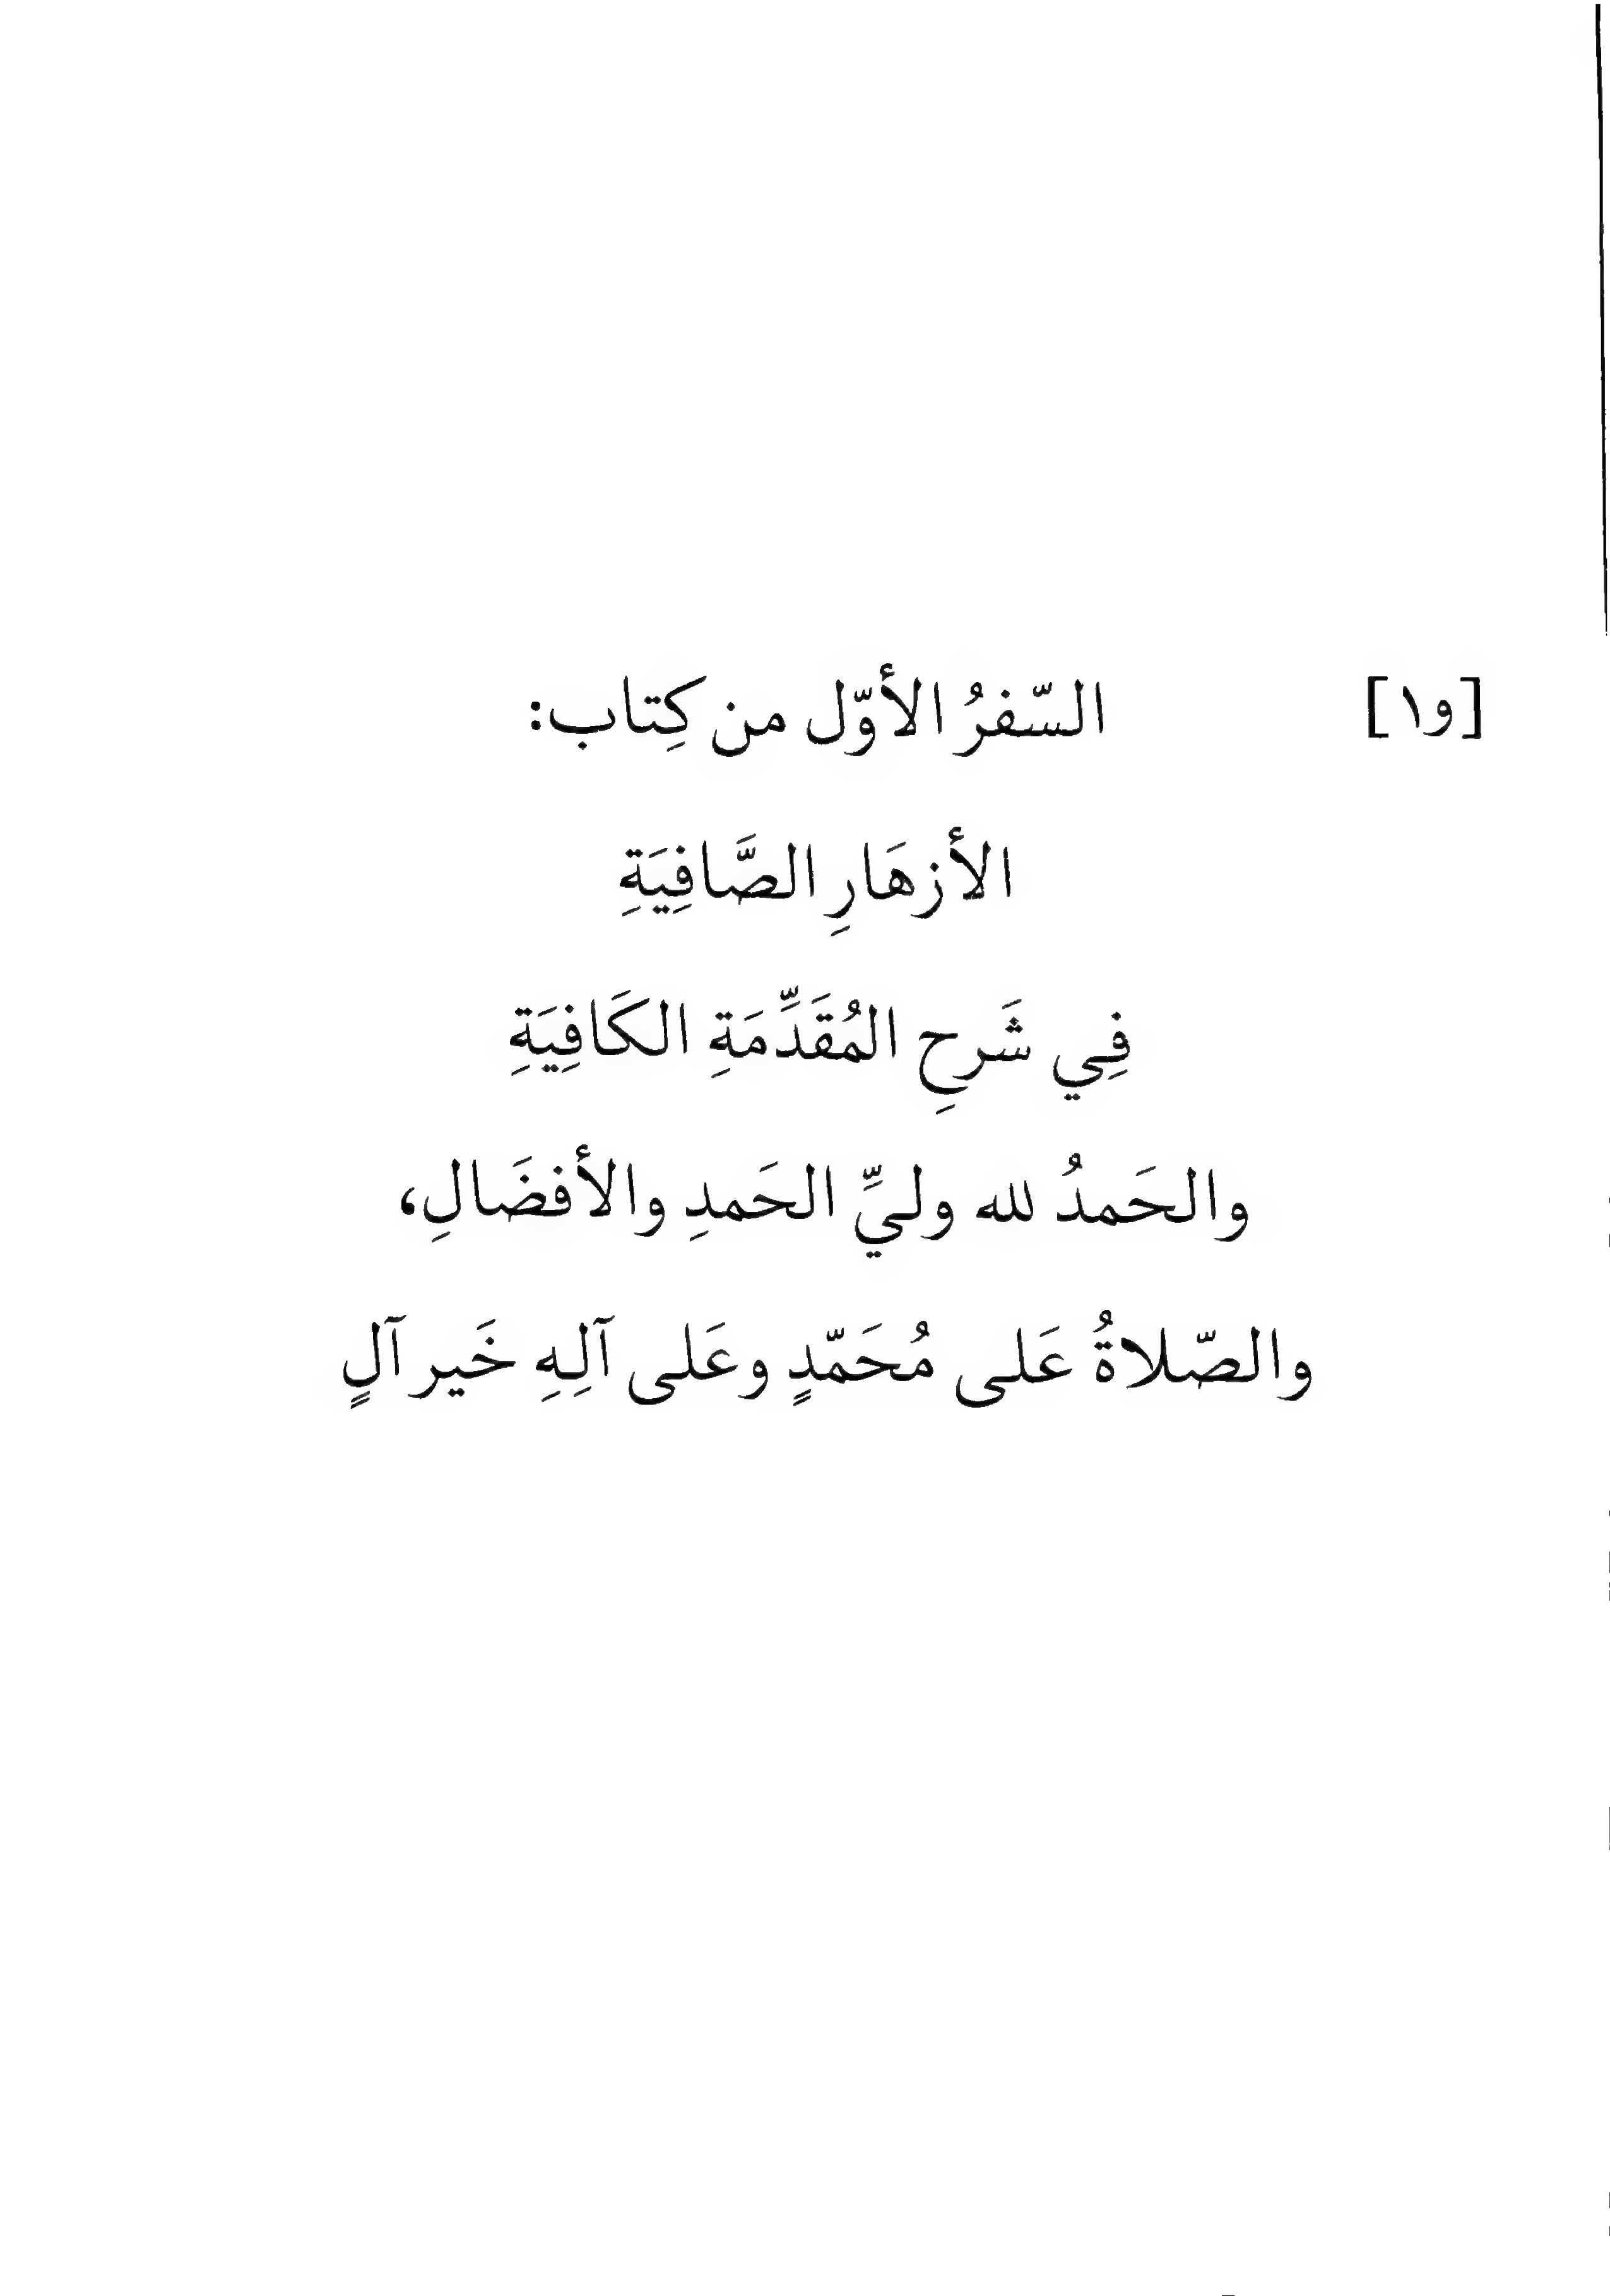 [و١] السّفرُ الأوّل من كِتاب:
الأزهَارِ الصَّافِيَةِ
فِي شَرحِ المُقَدِّمَةِ الكَافِيَةِ
والحَمدُ لله وليِّ الحَمدِ والأفضَالِ،
والصّلاةُ عَلى مُحَمّدٍ وعَلى آلِهِ خَير آلٍ